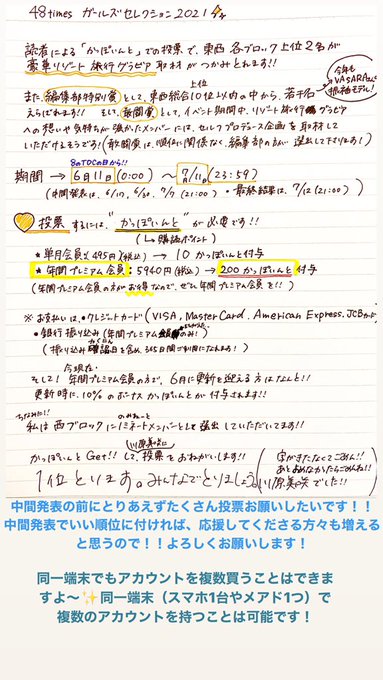 48times ガールズセレクション2021⚡
読者による「かっぽいんと」での投票で、東西各ブロック上位2名が
豪華リゾート旅行グラビア取材がつかめとれます!!
今年も
VASARAさん
振袖モデル!
また、編集部特別賞として、東西総合上位10位以内の中から、若干名
えらばれます!! そして、敢闘賞として、イベント期間中、リゾート旅行グラビア
への想いや気持ちが強かったメンバーには、セルフプロデュース企画を取材して
いただけるそうです!(敢闘賞は、順位に関係なく、編集部の方が選出して下さります!)
8のTDCの日から!!
期間 → 6月11日(0:00) 〜 7月11日(23:59)
(中間発表は、6/17、6/30、7/7 (21:00) ・最終結果は、7/12 (21:00))
投票するには、"かっぽいんと"が必要です!!
(↳購読ポイント)
★単月会員:495円(税込) → 10かっぽいんと付与
★年間プレミアム会員:5940円(税込) → 200かっぽいんと付与
(年間プレミアム会員の方がお得なので、ぜひ年間プレミアム会員を!!)
※お支払いは、・クレジットカード(VISA、MasterCard、American Express、JCBカード)
・銀行振り込み(年間プレミアム会員のみ!)
(振り込み確認日を含め、365日間ご利用になれます!)
今現在、
そして!年間プレミアム会員の方で、6月に更新を迎える方はなんと!!
更新時に、10%のボーナスかっぽいんとが付与されます!!
ちなみに!!
私は西ブロックにノミネートメンバーとして選出していただいてます!!
かっぽいんとGet!!して、川原美咲に投票をおねがいします!!
1位とります。みんなでとりましょう。
字がきたなくてごめん!!
川原美咲でした!!
中間発表の前にとりあえずたくさん投票お願いしたいです！！
中間発表でいい順位に付ければ、応援してくださる方々も増える
と思うので！！よろしくお願いします！
同一端末でもアカウントを複数買うことはできま
すよ〜✨同一端末（スマホ1台やメアド1つ）で
複数のアカウントを持つことは可能です！